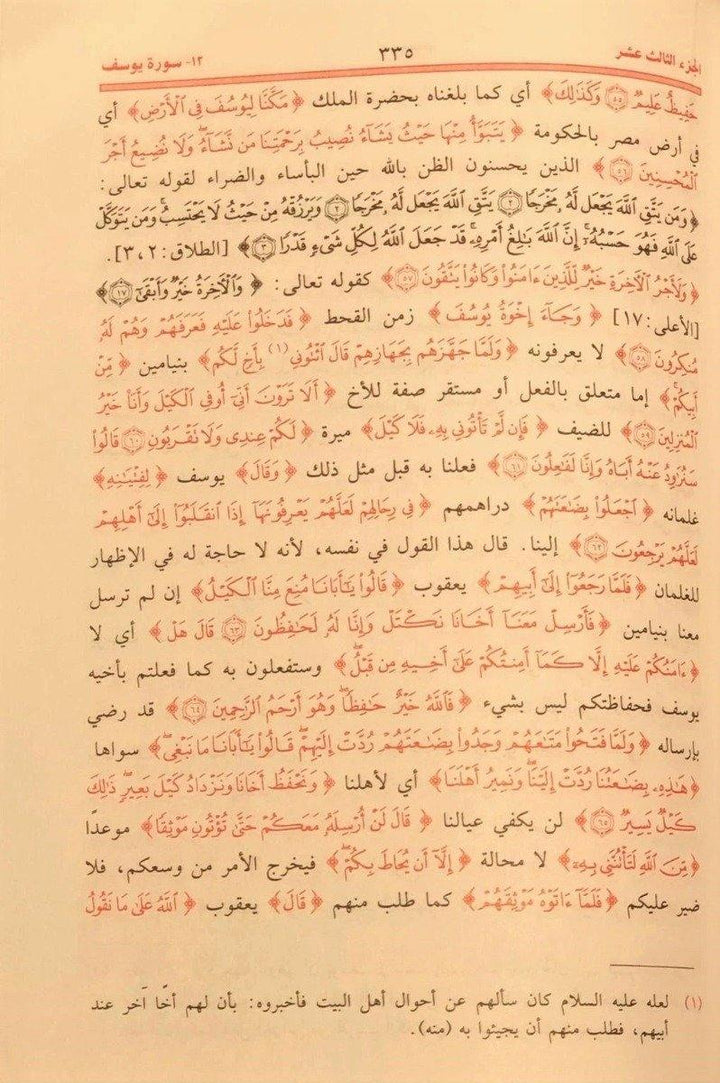 الجزء الثالث عشر ٣٣٥ ١٢- سورة يوسف
حَفِيظٌ عَلِيمٌ ﴿٥٥﴾ وَكَذَلِكَ﴾ أي كما بلغناه بحضرة الملك ﴿مَكَّنَّا لِيُوسُفَ فِي الْأَرْضِ﴾ أي
في أرض مصر بالحكومة ﴿يَتَبَوَّأُ مِنْهَا حَيْثُ يَشَاءُ نُصِيبُ بِرَحْمَتِنَا مَن نَّشَاءُ وَلَا نُضِيعُ أَجْرَ
الْمُحْسِنِينَ ﴿٥٦﴾﴾ الذين يحسنون الظن بالله حين البأساء والضراء لقوله تعالى:
﴿وَمَن يَتَّقِ اللَّهَ يَجْعَل لَّهُ مَخْرَجًا ﴿٢﴾ يَتَّقِ اللَّهَ يَجْعَل لَّهُ مَخْرَجًا ﴿٢﴾ وَيَرْزُقْهُ مِنْ حَيْثُ لَا يَحْتَسِبُ وَمَن يَتَوَكَّلْ
عَلَى اللَّهِ فَهُوَ حَسْبُهُ إِنَّ اللَّهَ بَالِغُ أَمْرِهِ قَدْ جَعَلَ اللَّهُ لِكُلِّ شَيْءٍ قَدْرًا ﴿٣﴾﴾ [الطلاق: ٢، ٣].
﴿وَلَأَجْرُ الْآخِرَةِ خَيْرٌ لِّلَّذِينَ ءَامَنُوا وَكَانُوا يَتَّقُونَ ﴿٥٧﴾﴾ كقوله تعالى: ﴿وَالْآخِرَةُ خَيْرٌ وَأَبْقَى ﴿١٧﴾﴾
[الأعلى: ١٧] ﴿وَجَاءَ إِخْوَةُ يُوسُفَ﴾ زمن القحط ﴿فَدَخَلُوا عَلَيْهِ فَعَرَفَهُمْ وَهُمْ لَهُ
مُنكِرُونَ ﴿٥٨﴾﴾ لا يعرفونه ﴿وَلَمَّا جَهَّزَهُم بِجَهَازِهِمْ قَالَ ائْتُونِي (١) بِأَخٍ لَّكُم﴾ بنيامين ﴿مِّنْ
أَبِيكُمْ﴾ إما متعلق بالفعل أو مستقر صفة للأخ ﴿أَلَا تَرَوْنَ أَنِّي أُوفِي الْكَيْلَ وَأَنَا خَيْرُ
الْمُنزِلِينَ ﴿٥٩﴾﴾ للضيف ﴿فَإِن لَّمْ تَأْتُونِي بِهِ فَلَا كَيْلَ﴾ ميرة ﴿لَكُمْ عِندِي وَلَا تَقْرَبُونِ ﴿٦٠﴾ قَالُوا
سَنُرَاوِدُ عَنْهُ أَبَاهُ وَإِنَّا لَفَاعِلُونَ ﴿٦١﴾﴾ فعلنا به قبل مثل ذلك ﴿وَقَالَ﴾ يوسف ﴿لِفِتْيَانِهِ﴾
غلمانه ﴿اجْعَلُوا بِضَاعَتَهُمْ﴾ دراهمهم ﴿فِي رِحَالِهِمْ لَعَلَّهُمْ يَعْرِفُونَهَا إِذَا انقَلَبُوا إِلَى أَهْلِهِمْ
لَعَلَّهُمْ يَرْجِعُونَ ﴿٦٢﴾﴾ إلينا. قال هذا القول في نفسه، لأنه لا حاجة له في الإظهار
للغلمان ﴿فَلَمَّا رَجَعُوا إِلَى أَبِيهِمْ﴾ يعقوب ﴿قَالُوا يَا أَبَانَا مُنِعَ مِنَّا الْكَيْلُ﴾ إن لم ترسل
معنا بنيامين ﴿فَأَرْسِلْ مَعَنَا أَخَانَا نَكْتَلْ وَإِنَّا لَهُ لَحَافِظُونَ ﴿٦٣﴾ قَالَ هَلْ﴾ أي لا
﴿ءَامَنُكُمْ عَلَيْهِ إِلَّا كَمَا أَمِنتُكُمْ عَلَى أَخِيهِ مِن قَبْلُ﴾ وستفعلون به كما فعلتم بأخيه
يوسف فحفاظتكم ليس بشيء ﴿فَاللَّهُ خَيْرٌ حَافِظًا وَهُوَ أَرْحَمُ الرَّاحِمِينَ ﴿٦٤﴾﴾ قد رضي
بإرساله ﴿وَلَمَّا فَتَحُوا مَتَاعَهُمْ وَجَدُوا بِضَاعَتَهُمْ رُدَّتْ إِلَيْهِمْ قَالُوا يَا أَبَانَا مَا نَبْغِي﴾ سواها
﴿هَذِهِ بِضَاعَتُنَا رُدَّتْ إِلَيْنَا وَنَمِيرُ أَهْلَنَا﴾ أي لأهلنا ﴿وَنَحْفَظُ أَخَانَا وَنَزْدَادُ كَيْلَ بَعِيرٍ ذَلِكَ
كَيْلٌ يَسِيرٌ ﴿٦٥﴾﴾ لن يكفي عيالنا ﴿قَالَ لَنْ أُرْسِلَهُ مَعَكُمْ حَتَّى تُؤْتُونِ مَوْثِقًا﴾ موعدًا
﴿مِّنَ اللَّهِ لَتَأْتُنَّنِي بِهِ﴾ لا محالة ﴿إِلَّا أَن يُحَاطَ بِكُمْ﴾ فيخرج الأمر من وسعكم، فلا
ضير عليكم ﴿فَلَمَّا ءَاتَوْهُ مَوْثِقَهُمْ﴾ كما طلب منهم ﴿قَالَ﴾ يعقوب ﴿اللَّهُ عَلَى مَا نَقُولُ
(١) لعله عليه السلام كان سألهم عن أحوال أهل البيت فأخبروه: بأن لهم أخًا آخر عند
أبيهم، فطلب منهم أن يجيئوا به (منه).